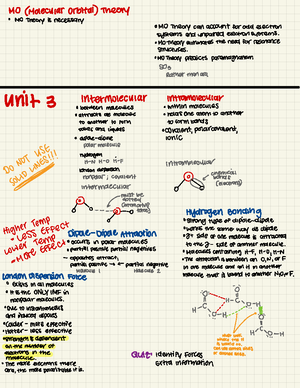 MO (Molecular Orbital) Theory
• MO Theory is necessary
• MO Theory can account for odd electron
systems and unpaired electron systems.
• MO theory eliminates the need for resonance
structures.
• MO Theory predicts paramagnetism
Unit 3
Intermolecular
• between molecules
• attracts one molecule
to another to form
solids and liquids
• dipole-dipole
polar molecules
hydrogen
N-H O-H F-H
london dispersion
nonpolar, covalent
Intramolecular
• within molecules
• relent one atom to another
to form bonds
• covalent, polar covalent,
ionic
DO NOT USE
SOLID LINES!!!
Intermolecular
must be
dotted
Intramolecular
chemical
bonds
Higher Temp
• Less Effect
Lower Temp
• More Effect
Dipole-Dipole Attraction
• occurs in polar molecules
• partial positive partial negative
→ opposites attract
partial positive → ← partial negative
molecule 1 molecule 2
Hydrogen Bonding
• strong type of dipole-dipole
• works the same way as dipole
• δ+ side of one molecule is attracted
to the δ- side of another molecule.
• Molecules containing H-F, H-O, H-N
London Dispersion Force
• Exists in all molecules
• It is the ONLY IMF in
nonpolar molecules.
• Due to instantaneous
and induced dipoles
• Colder - more effective
• Hotter - less effective
• Strength is dependent
on the number of
electrons in the
molecule.
• The more electrons there
are, the more polarizable it is.
Quiz: Identify Forces
Extra information